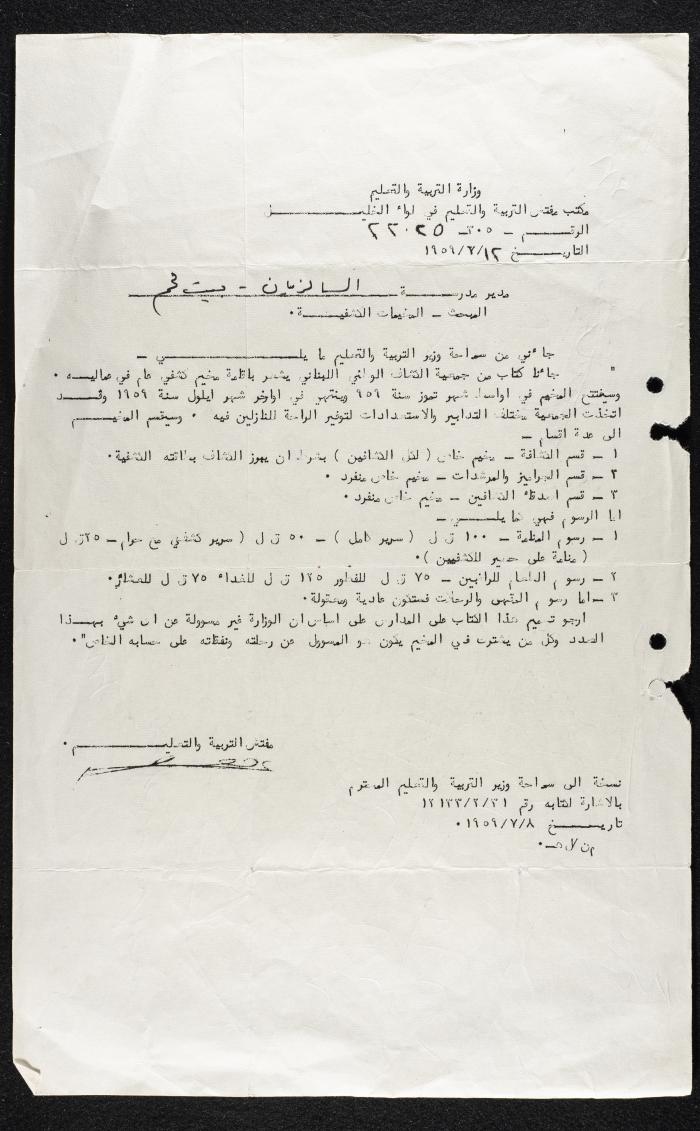 وزارة التربية والتعليم
مكتب مفتش التربية والتعليم في لواء الخليـــــــــل
الرقــــــم — ٣٠٥ـ ٢٢٠٢٥
التاريــــــخ ١٩٥٩/٧/١٢
مدير مدرســـــــة السالزيان - بيت لحم
المبحث — المخيمات الكشفيــــــة ٠
جاءني من سماحة وزير التربية والتعليم ما يلـــــــــي —
" جاءنا كتاب من جمعية الكشاف الوطني اللبناني يشعر باقامة مخيم كشفي عام في عاليــه ٠
وسيفتتح المخيم في اواسط شهر تموز سنة ٩٥٩ وينتهي في اواخر شهر ايلول سنة ١٩٥٩ وقـــد
اتخذت الجمعية مختلف التدابير والاستعدادات لتوفير الراحة للنازلين فيه ٠ وسيقسم المخيـــم
الى عدة اقسام —
١ — قسم الكشافة — مخيم خاص ( لكل الكشافين ) بشرط ان يبرز الكشاف بطاقته الكشفية٠
٢ — قسم الجراميز والمرشدات — مخيم خاص منفرد ٠
٣ — قسم اصدقاء الكشافين — مخيم خاص منفرد ٠
اما الرسوم فهي كما يلـــــي —
١ — رسوم المنامة — ١٠٠ ق٠ل ( سرير كامل ) — ٥٠ ق٠ل ( سرير كشفي مع حرام — ٢٥ق٠ل
( منامة على حصير للكشفيين )٠
٢ — رسوم الطعام للراغبين — ٧٥ ق٠ل للفطور ١٢٥ ق٠ل للغداء ٧٥ ق٠ل للعشاء٠
٣ — اما رسوم المقهى والرحلات فستكون عادية ومعقولة٠
ارجو تعميم هذا الكتاب على المدارس على اساس ان الوزارة غير مسؤولة عن اى شيء بهـــذا
الصدد وكل من يشترك في المخيم يكون هو المسؤول عن رحلته ونفقاته على حسابه الخاص"٠
مفتش التربية والتعليـــــــم ٠
نسخة الى سماحة وزير التربية والتعليم المحترم
بالاشارة لكتابه رقم ١٢١٣٣/٢/٣١
تاريـــــخ ١٩٥٩/٧/٨ ٠